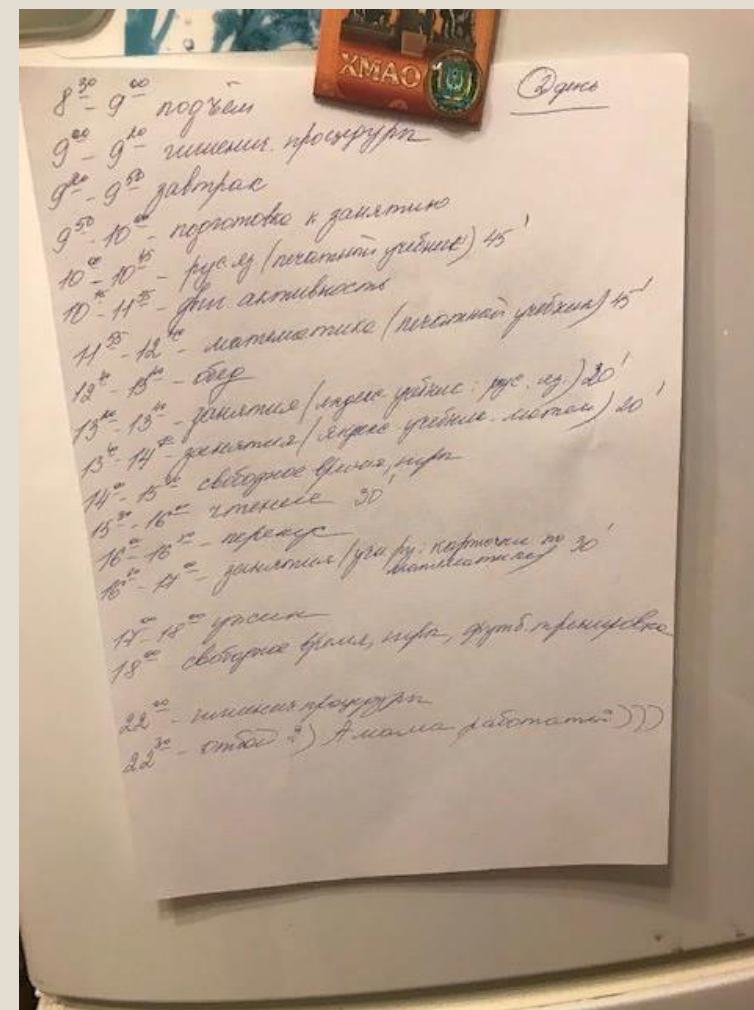 ХМАО
② день
8³⁰ - 9⁰⁰ подъём
9⁰⁰ - 9²⁰ гигиенич. процедуры
9²⁰ - 9⁵⁰ завтрак
9⁵⁰ - 10⁰⁰ - подготовка к занятию
10⁰⁰ - 10⁴⁵ - рус. яз (печатный учебник) 45'
10⁴⁵ - 11⁵⁵ - физ активность
11⁵⁵ - 12⁴⁰ - математика (печатный учебник) 45'
12⁴⁰ - обед
13²⁰ - 13⁴⁰ - занятия (яндекс. учебник: рус. яз.) 20'
13⁴⁰ - 14⁰⁰ занятия (яндекс учебник. матем) 20'
14⁰⁰ - 15³⁰ свободное время, игры
15³⁰ - 16⁰⁰ чтение 30'
16⁰⁰ - 16³⁰ - перекус
16³⁰ - 17⁰⁰ - занятия (учи.ру: карточки по математике) 30'
17⁰⁰ - 18⁰⁰ ужин
18⁰⁰ свободное время, игры, футб. тренировка
22⁰⁰ - гигиенич процедуры
22³⁰ - отбой А мама работать)))